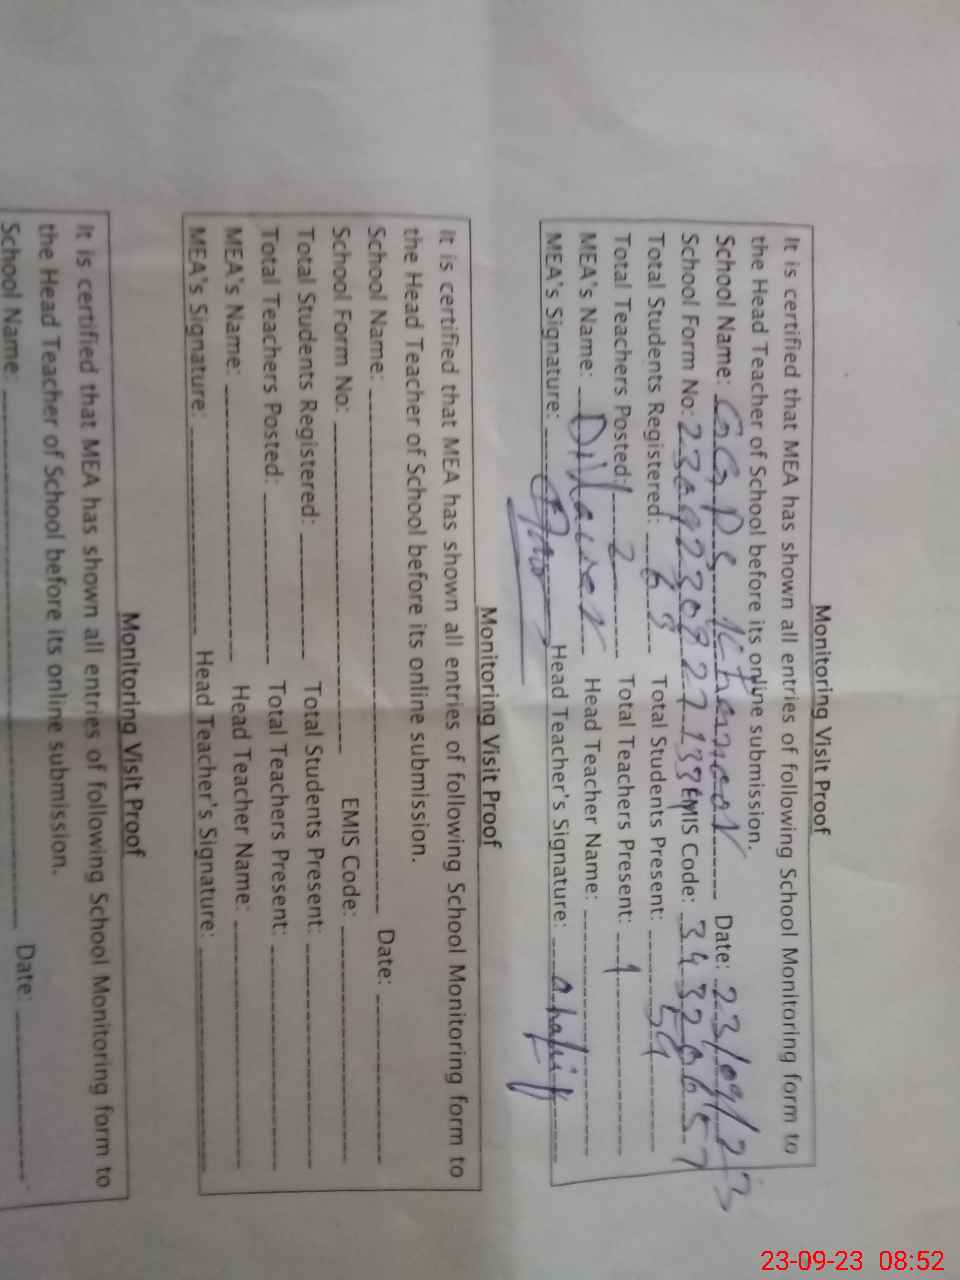 Monitoring Visit Proof
It is certified that MEA has shown all entries of following School Monitoring form to
the Head Teacher of School before its online submission.
School Name: GGPS Date: 23/09/23
School Form No: EMIS Code: 34320657
Total Students Registered: 68 Total Students Present: 59
Total Teachers Posted: 2 Total Teachers Present: 1
MEA's Name: Dilawer Head Teacher Name:
MEA's Signature: Head Teacher's Signature:
Monitoring Visit Proof
It is certified that MEA has shown all entries of following School Monitoring form to
the Head Teacher of School before its online submission.
School Name: Date:
School Form No: EMIS Code:
Total Students Registered: Total Students Present:
Total Teachers Posted: Total Teachers Present:
MEA's Name: Head Teacher Name:
MEA's Signature: Head Teacher's Signature:
Monitoring Visit Proof
It is certified that MEA has shown all entries of following School Monitoring form to
the Head Teacher of School before its online submission.
School Name: Date:
23-09-23 08:52